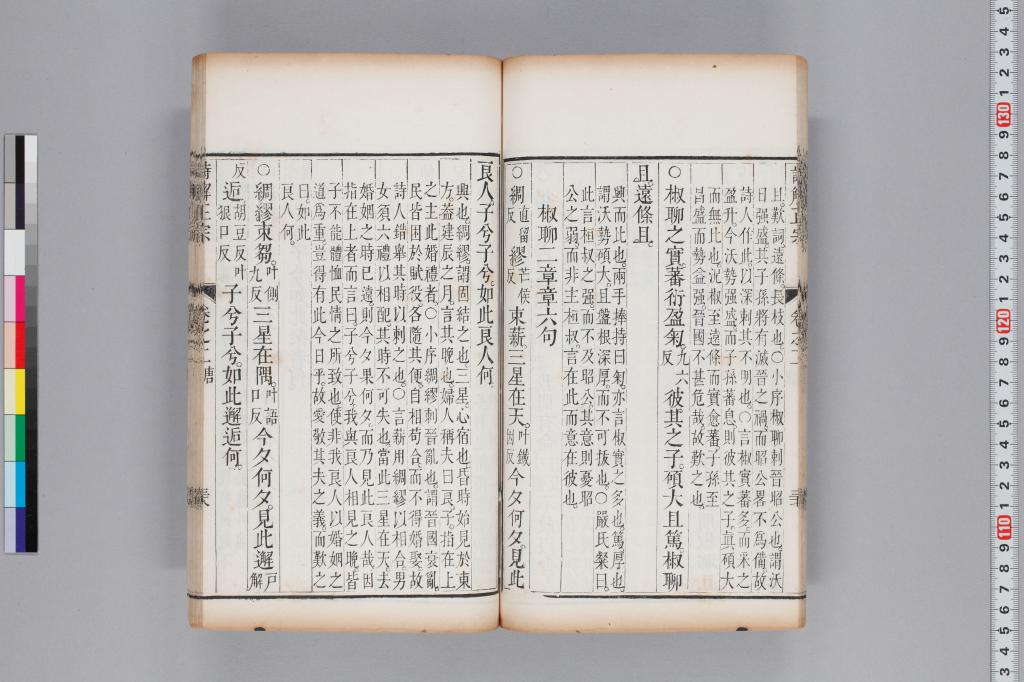 且歎詞遠條長枝也○小序椒聊刺晉昭公也謂沃
日强盛其子孫將有滅晉之禍而昭公畧不爲備故
詩人作此以深刺其不明也○言椒實蕃多而采之
盈升今沃勢强盛而子孫蕃息則彼其之子眞碩大
而無比也況椒至遠條而實愈蕃子孫至
昌盛而勢益强晉國不甚危哉故歎之也
○椒聊之實蕃衍盈匊九六反彼其之子碩大且篤椒聊
且遠條且
興而比也兩手捧持曰匊亦言椒實之多也篤厚也
謂沃勢碩大且盤根深厚而不可拔也○嚴氏粲曰
此言桓叔之强而不及昭公其意則憂昭
公之弱而非主桓叔言在此而意在彼也
椒聊二章章六句
○綢直留反繆芒侯反束薪三星在天叶鐵因反今夕何夕見此
良人子兮子兮如此良人何
興也綢繆謂固結之也三星心宿也昏時始見於東
方蓋建辰之月言其晩也婦人稱夫曰良子指在上
之主此婚禮者○小序綢繆刺晉亂也謂晉國衰亂
民皆困於賦役各隨其便自相苟合而不得婚娶故
詩人錯舉其時以刺之也○言薪用綢繆以相合男
女須六禮以相配其時不可失也當此三星在天去
婚姻之時已遠則今夕果何夕而乃見此良人哉因
指在上者而言曰子兮子兮我與良人相見之晩皆
子不能體恤民情之所致也使非我良人以婚姻之
道爲重豈得有此今日乎故愛敬其夫之義而歎之
曰如此
良人何
○綢繆束芻叶側九反三星在隅叶語口反今夕何夕見此邂戶解
反逅胡豆反叶狠口反子兮子兮如此邂逅何
詩解正宗
卷之二唐